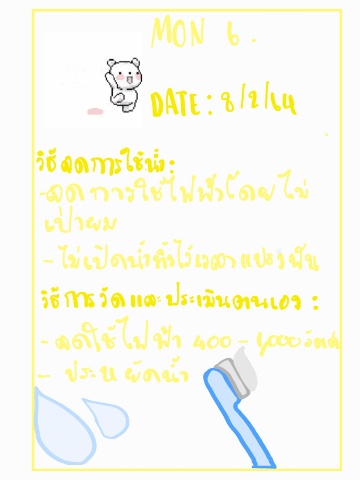 MON 6.
DATE: 8/2/64
วิธีลดการใช้น้ำ:
-ลดการใช้ไฟฟ้าโดยไม่
เป่าผม
-ไม่เปิดน้ำทิ้งไว้เวลาแปรงฟัน
วิธีการวัดและประเมินตนเอง:
-ลดใช้ไฟฟ้า 400-1,000วัตต์
- ประหยัดน้ำ